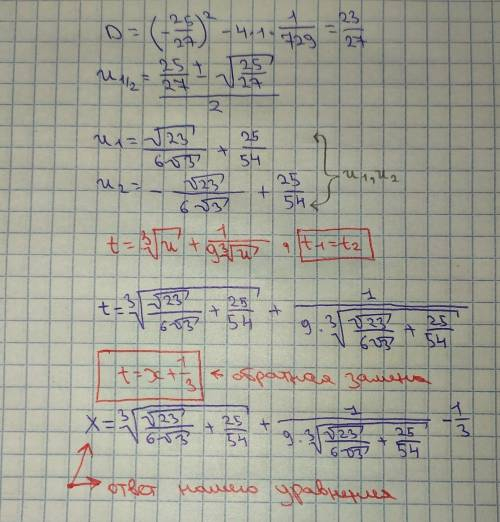 D = (-25/27)² - 4·1·1/729 = 23/27
u₁/₂ = (25/27 ± √(25/27))/2
u₁ = √23/(6√3) + 25/54
u₂ = -√23/(6√3) + 25/54 } u₁, u₂
t = ∛u + 1/(9∛u), t₁ = t₂
t = ∛(√23/(6√3) + 25/54) + 1/(9·∛(√23/(6√3) + 25/54))
t = x + 1/3 ← обратная замена
X = ∛(√23/(6√3) + 25/54) + 1/(9·∛(√23/(6√3) + 25/54)) - 1/3
ответ нашего уравнения